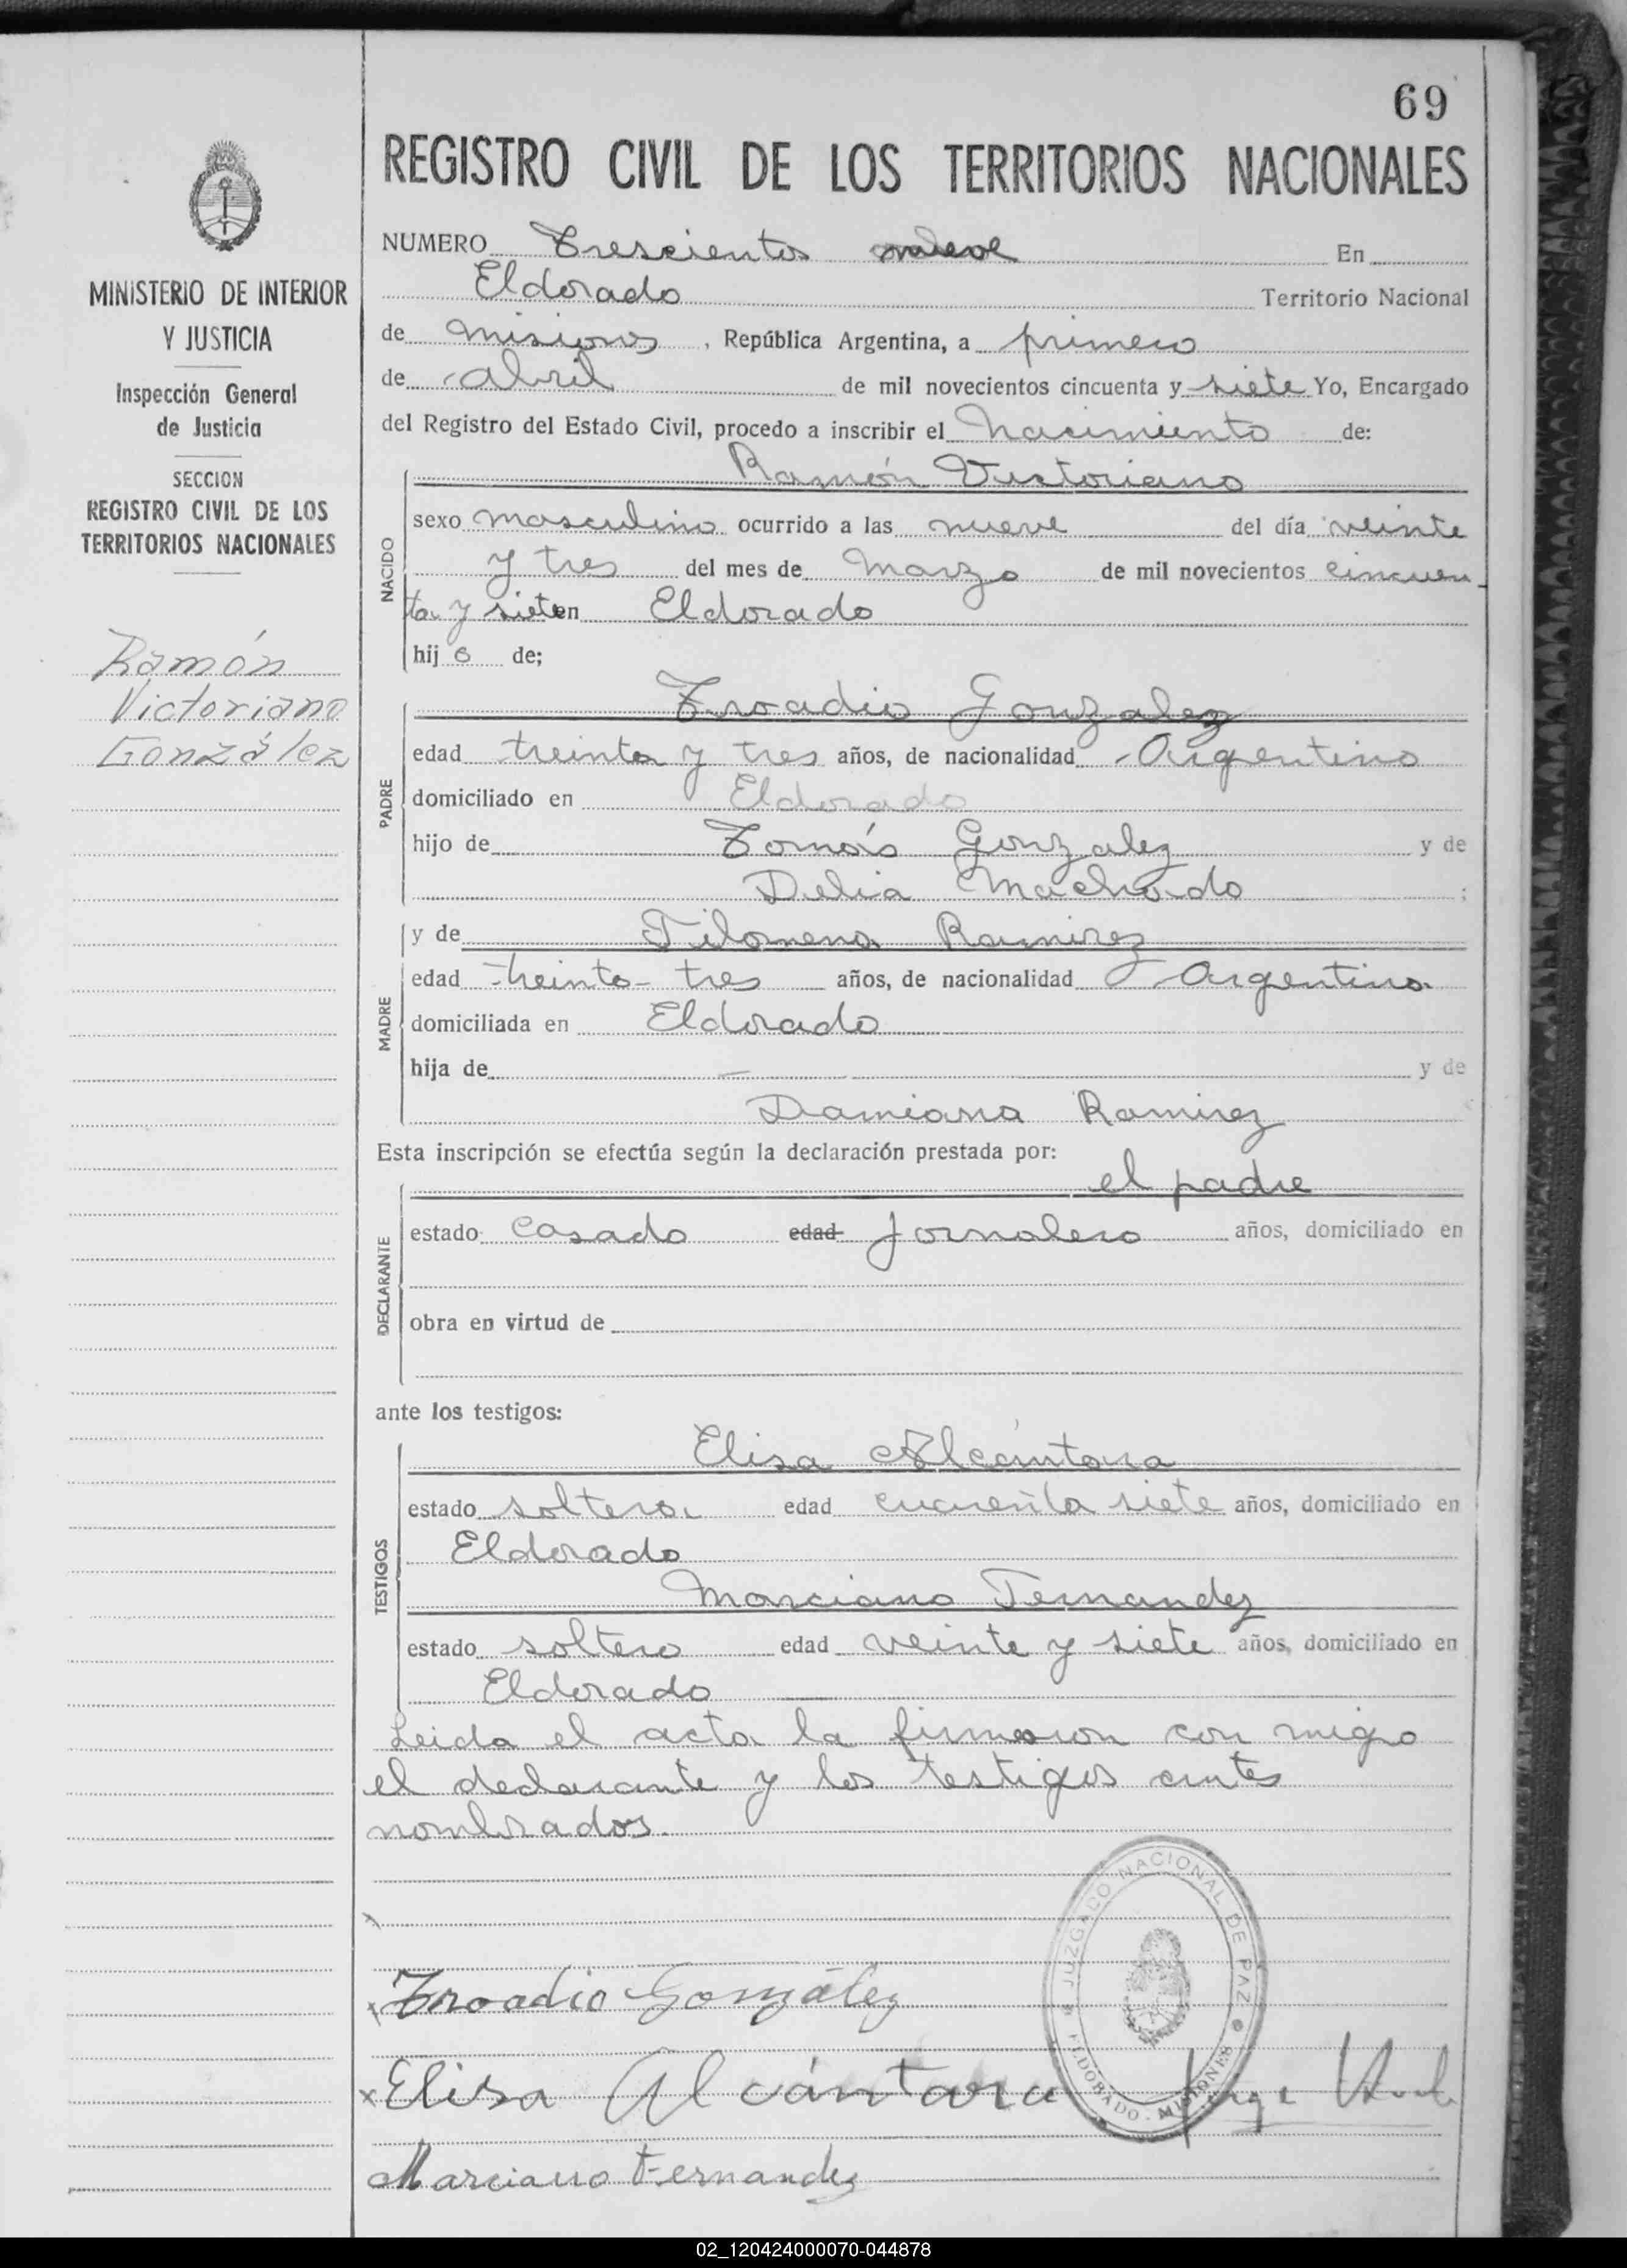 69
REGISTRO CIVIL DE LOS TERRITORIOS NACIONALES
MINISTERIO DE INTERIOR
Y JUSTICIA
Inspección General
de Justicia
SECCION
REGISTRO CIVIL DE LOS
TERRITORIOS NACIONALES
Ramón
Victoriano
González
NUMERO Trescientos nueve En
Eldorado Territorio Nacional
de Misiones, República Argentina, a primero
de abril de mil novecientos cincuenta y siete Yo, Encargado
del Registro del Estado Civil, procedo a inscribir el Nacimiento de:
NACIDO
Ramón Victoriano
sexo masculino ocurrido a las nueve del día veinte
y tres del mes de Marzo de mil novecientos cincuen
ta y siete en Eldorado
hijo de;
PADRE
Troadio Gonzalez
edad treinta y tres años, de nacionalidad Argentino
domiciliado en Eldorado
hijo de Tomás Gonzalez y de
Delia Machado ;
MADRE
y de Filomena Ramirez
edad treinta tres años, de nacionalidad Argentina
domiciliada en Eldorado
hija de — y de
Damiana Ramirez
Esta inscripción se efectúa según la declaración prestada por:
DECLARANTE
el padre
estado casado edad jornalero años, domiciliado en
obra en virtud de
ante los testigos:
TESTIGOS
Elisa Alcántara
estado soltera edad siete años, domiciliado en
Eldorado
Marciano Fernandez
estado soltero edad veinte y siete años, domiciliado en
Eldorado
Leida el acta la firmaron con migo
el declarante y los testigos antes
nombrados.
x Troadio González
x Elisa Alcántara
Marciano Fernandez
JUZGADO NACIONAL DE PAZ
ELDORADO - MISIONES
02_120424000070-044878